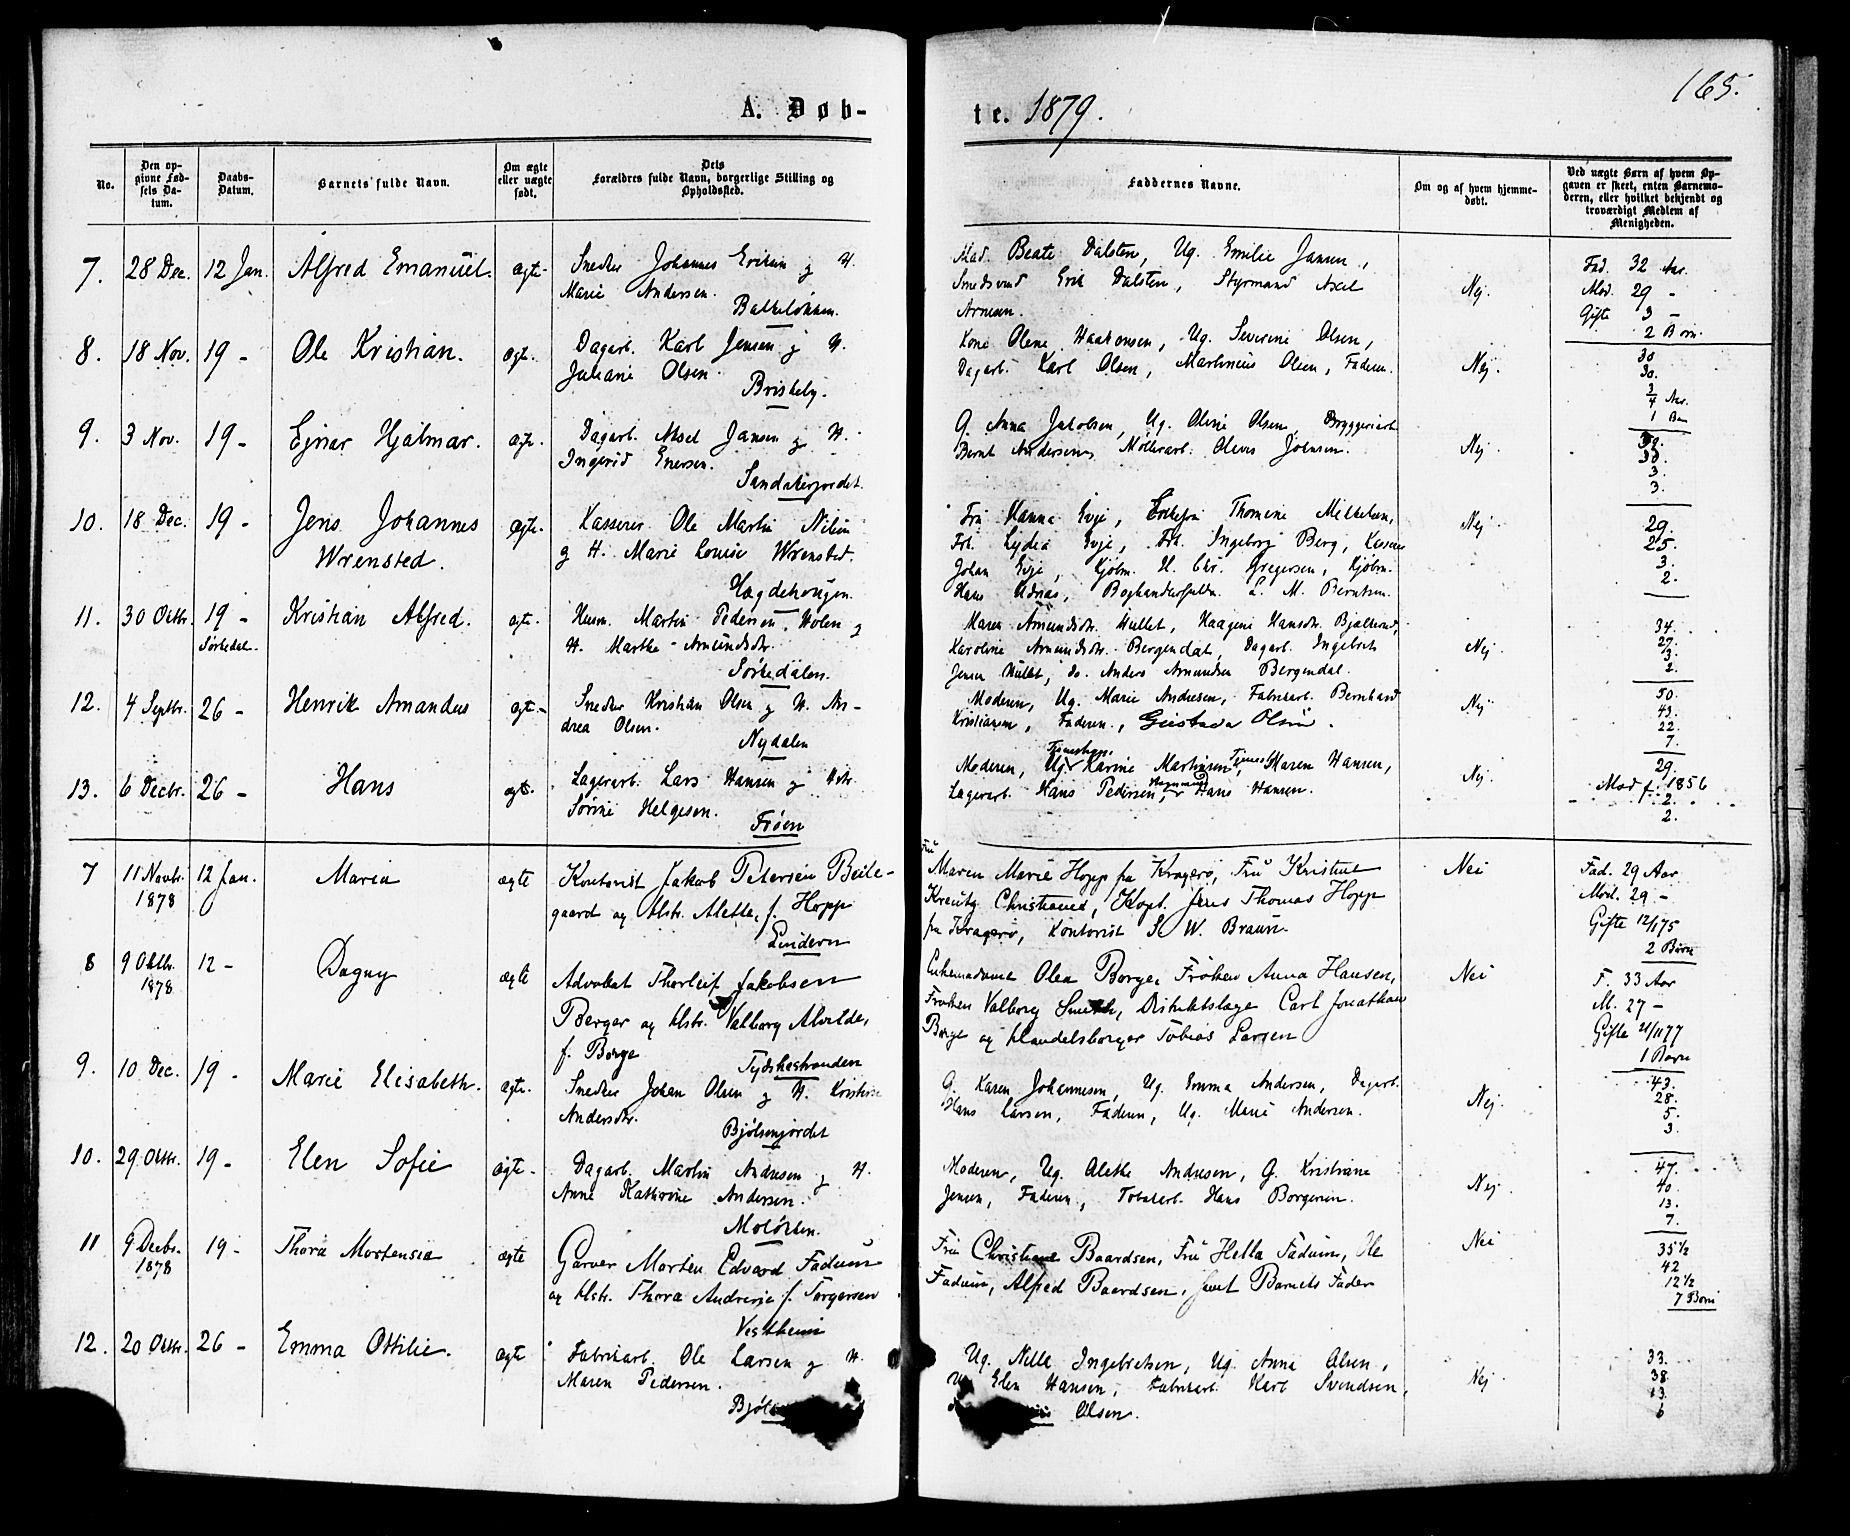 165.
A. Døb-
te. 1879.
No.
Den op-
givne Fød-
sels Da-
tum.
Daabs-
Datum.
Barnets fulde Navn.
Om ægte
eller uægte
født.
Dets
Forældres fulde Navn, borgerlige Stilling og
Opholdssted.
Faddernes Navne.
Om og af hvem hjemme-
døbt.
Ved uægte Børn af hvem Op-
gaven er skeet, enten Barnemo-
deren, eller hvilket bekjendt og
troværdigt Medlem af
Menigheden.
7. 28 Dec. 12 Jan. Alfred Emanuel. ægte. Snedker Johannes Eriksen og H.
Marie Andersen.
Balkeløkken.
Mad. Beate Dalsten, Ug. Emilie Jansen,
Smedsvend Erik Dalsten, Styrmand Axel
Arnesen.
Nej.
Fad. 32 Aar.
Mod. 29 -
Gifte 3 -
2 Børn.
8. 18 Nov. 19 - Ole Kristian. ægte. Dagarb. Karl Jensen og H.
Juliane Olsen.
Briskeby.
Kone Olene Haakonsen, Ug. Severine Olsen,
Dagarb. Karl Olsen, Martinius Olsen, Faderen.
Nej.
30
30.
3/4 Aar.
1 Bar
9. 3 Nov. 19 - Ejnar Hjalmar. ægte. Dagarb. Axel Jansen og H.
Ingerid Enersen.
Sandakerjordet.
G. Anna Jakobsen, Ug. Oline Olsen, Bryggeriarb.
Bernt Andersen, Møllerarb. Oluves Johnsen.
Nej.
38.
3.
3.
10. 18 Dec. 19 - Jens Johannes
Wrensted.
ægte. Kasserer Ole Martin Nilsen
og H. Marie Louise Wrensted.
Hægdehougen.
Fru Hanna Evje, Enkefru Thomine Mikkelsen,
Frk. Lydia Evje, Frk. Ingeborg Berg, Kasserer
Johan Evje, Kjøbm. H. Chr. Gregersen, Kjøbm.
Hans Udnæs, Boghandlerfuldm. L. M. Berntsen.
Nej.
29.
25.
3.
2.
11. 30 Octbr. 19 -
Sørkedal.
Kristian Alfred. ægte. Husm. Martin Pedersen Holen og
H. Marthe Amundsdtr.
Sørkedalen.
Maren Amundsdtr. Hullet, Haagene Hansdtr. Bjølkerud,
Karoline Amundsdtr. Bergendal, Dagarb. Ingebret
Jensen Hullet, do. Anders Amundsen Bergendal.
Nej.
34.
27.
3.
2.
12. 4 Septbr. 26 - Henrik Amandus ægte. Snedker Kristian Olsen og H. An-
drea Olsen.
Nydalen
Moderen, Ug. Marie Andresen, Fabrikarb. Bernhard
Kristiansen, Faderen, Gustava Olsen.
Nej.
50.
43.
22.
7.
13. 6 Decbr. 26 - Hans ægte. Lagerarb. Lars Hansen og Hstr.
Sørine Helgesen.
Frøen
Moderen, Karine Martinsen, Maren Hansen,
Lagerarb. Hans Pedersen, Hans Hansen.
Nej.
29.
Mod f. 1856
2.
2.
7 11 Novbr.
1878
12 Jan. Maria ægte Kontorist Jakob Petersen Beile-
gaard og Hstr. Alette, f. Hopp
Lindern
Fru
Maren Marie Hopp fra Kragerø, Fru Kristine
Kreutz Christiania, Kapt. Jens Thomas Hopp
fra Kragerø, Kontorist S. W. Braun
Nei
Fad. 29 Aar
Mod. 29 -
Gifte 12/1 75
2 Børn
8 9 Oktbr.
1878
12 - Dagny ægte Advokat Thorleif Jakobsen
Berger og Hstr. Valborg Alvilde,
f. Borge
Tyskestranden
Enkemadame Olea Borge, Frøken Anna Hansen,
Frøken Valborg Smith, Distriktslæge Carl Jonathan
Borge og Handelsborger Tobias Larsen
Nei
F. 33 Aar
M. 27 -
Gifte 21/11 77
1 Barn
9. 10 Dec. 19 - Marie Elisabeth. ægte. Snedker Johan Olsen og H. Kristine
Andersdtr.
Bjølsenjordet
G. Karen Johannesen, Ug. Emma Andersen, Dagarb.
Hans Larsen, Faderen, Ug. Marie Andersen.
Nej.
43.
28.
5.
3.
10. 29 Oktbr. 19 - Elen Sofie ægte. Dagarb. Martin Andresen og H.
Anne Kathrine Andersen.
Moløkken.
Moderen, Ug. Alethe Andresen, G. Kristiane
Jensen, Faderen, Tobakarb. Hans Borgersen.
Nej.
47.
40.
13.
7.
11 9 Decbr.
1878
19 - Thora Mortensia ægte Garver Morten Edvard Fadum
og Hstr. Thora Andrea f. Torgersen
Vestheim
Fru Christiane Baardsen, Fru Hella Fadum, Ole
Fadum, Alfred Baardsen, samt Barnets Fader
Nei
35 1/2
42
12 1/2
7 Børn
12. 20 Oktbr. 26 - Emma Ottilie. ægte Fabrikarb. Ole Larsen og H.
Maren Pedersen.
Ug. Nelle Ingebretsen, Ug. Anna Olsen,
Ug. Elen Hansen, Fabrikarb. Karl Svendsen,
Olsen.
Nej.
33.
38.
13.
6